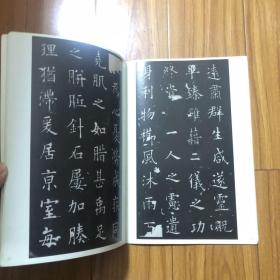 遠肅群生咸遂靈貺
畢臻雖藉二儀之功
終資一人之慮遺
身利物櫛風沐雨
為心憂勞成疾同
堯肌之如腊甚禹足
之胼胝針石屢加腠
理猶滯爰居京室每